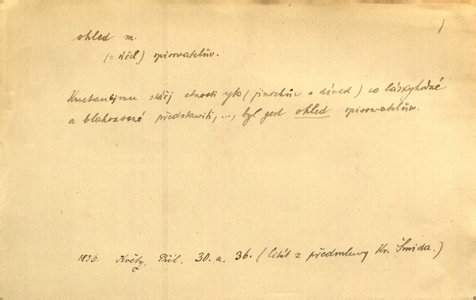 ohled m.
(= účel) spisovatelův.
stárj ctnosti (jinochův a dívek) co láskyhodné
a blahonosné představiti, ..., byl gest ohled spisovatelův.
1836. Květy, Příl. 30. a. 36. (Citát z předmluvy Kr. Šmída.)